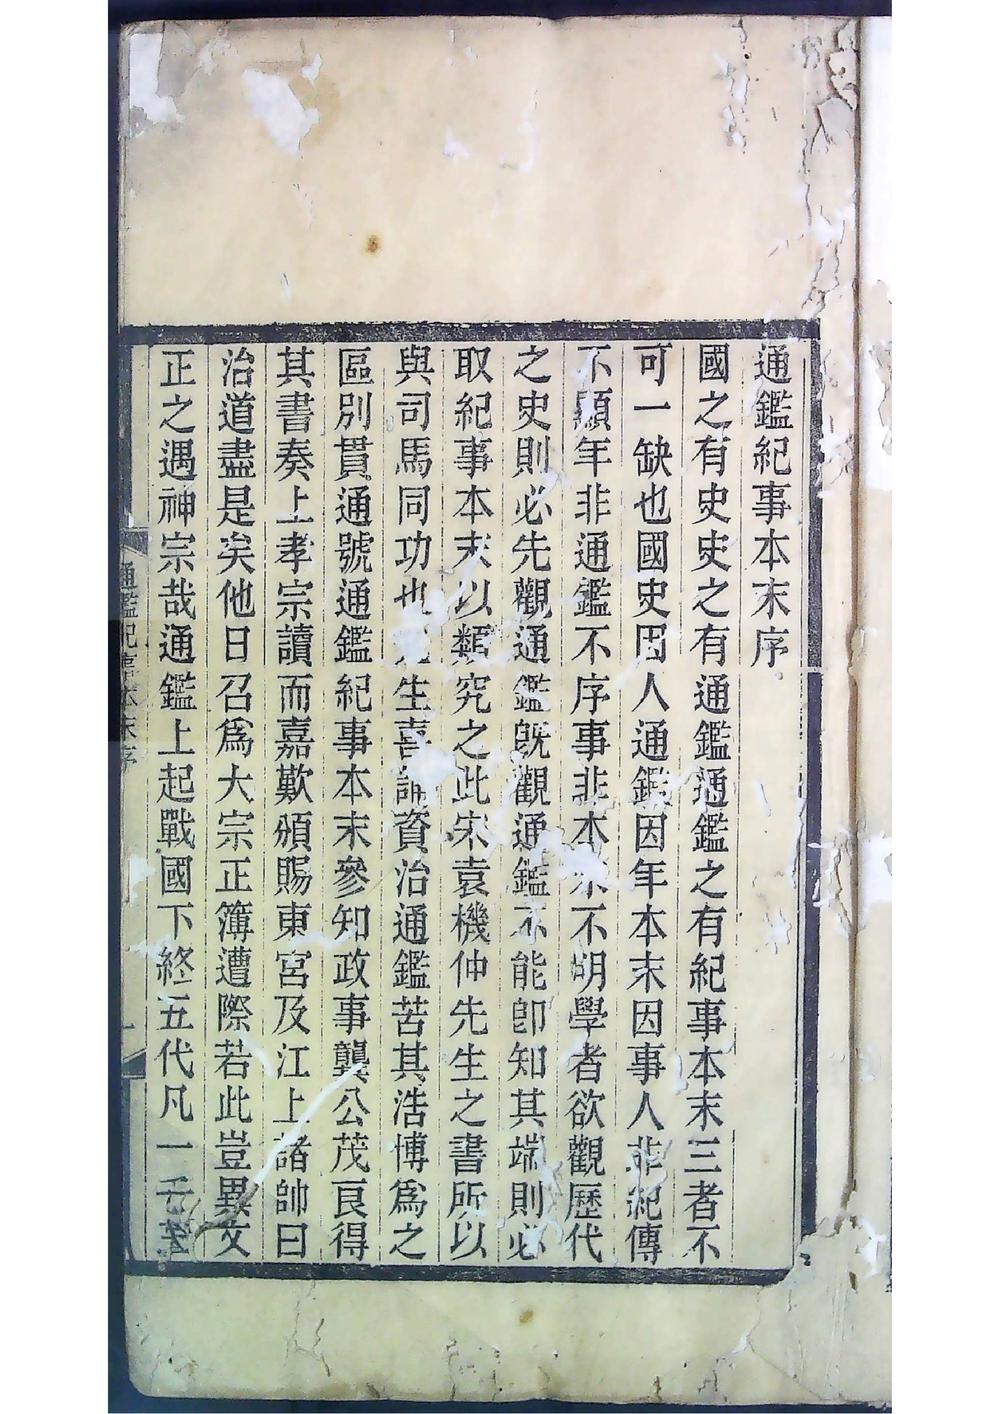 通鑑紀事本末序
國之有史史之有通鑑通鑑之有紀事本末三者不
可一缺也國史因人通鑑因年本末因事人非紀傳
不顯年非通鑑不序事非本末不明學者欲觀歷代
之史則必先觀通鑑旣觀通鑑不能卽知其端則必
取紀事本末以類究之此宋袁機仲先生之書所以
與司馬同功也先生喜誦資治通鑑苦其浩博爲之
區別貫通號通鑑紀事本末參知政事龔公茂良得
其書奏上孝宗讀而嘉歎頒賜東宮及江上諸帥曰
治道盡是矣他日召爲大宗正簿遭際若此豈異文
正之遇神宗哉通鑑上起戰國下終五代凡一千
通鑑紀事本末序
一